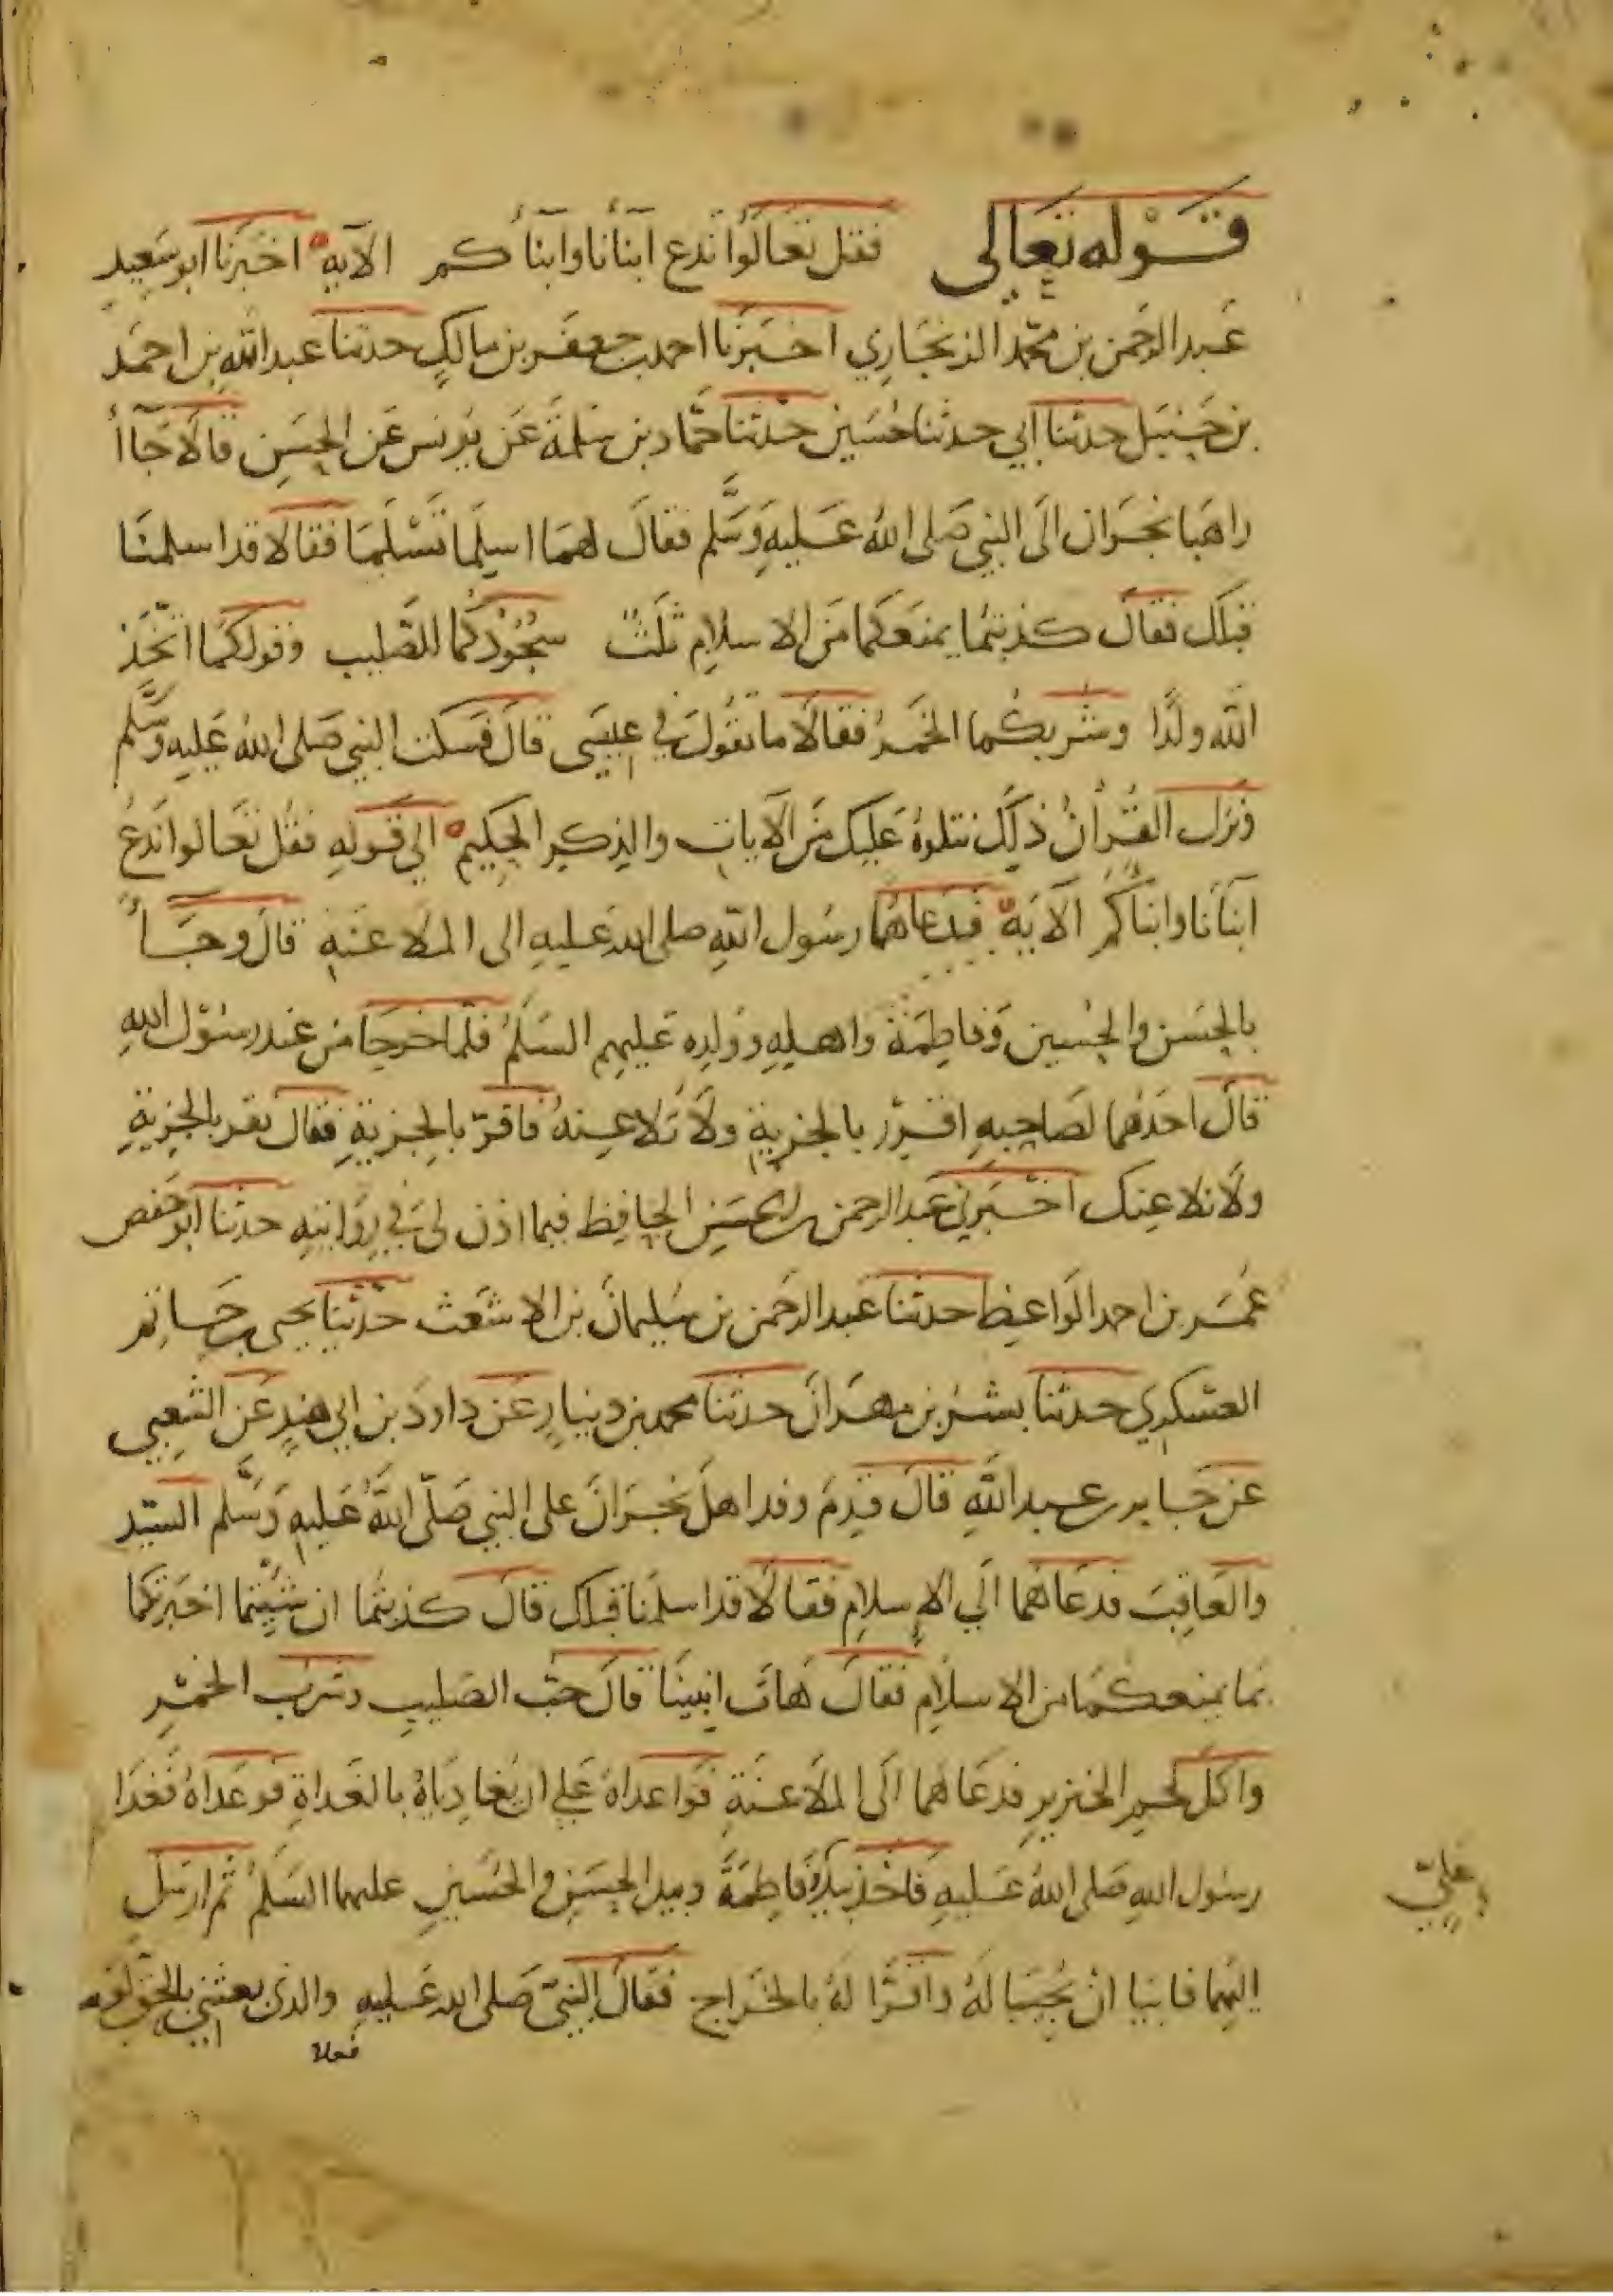 قوله تعالى فقل تعالوا ندع ابنأنا وابنأكم الآية اخبرنا ابو سعيد
عبد الرحمن بن محمد الزنجاري اخبرنا احمد بن جعفر بن مالك حدثنا عبد الله بن احمد
بن حنبل حدثنا ابي حدثنا حسين حدثنا حماد بن سلمة عن يونس عن الحسن قالا جآأ
راهبا نجران الى النبي صلى الله عليه وسلم فقال لهما اسلما تسلما فقالا قد اسلمنا
قبلك فقال كذبتما يمنعكما من الاسلام ثلث سجودكما للصليب وقولكما اتخذ
الله ولدا وشربكما الخمر فقالا ما تقول في عيسى قال فسكت النبي صلى الله عليه وسلم
ونزل القرأن ذلك نتلوه عليك من الآيات والذكر الحكيم الى قوله فقل تعالوا ندع
ابنأنا وابنأكم الآية فدعاهما رسول الله صلى الله عليه الى الملاعنة قال وجأ
بالحسن والحسين وفاطمة واهله وولده عليهم السلم فلما خرجا من عند رسول الله
قال احدهما لصاحبه اقرر بالجزية ولا تلاعنه فاقر بالجزية فقال نقر بالجزية
ولا نلاعنك اخبرني عبد الرحمن بن الحسن الحافظ فيما اذن لي في روايته حدثنا ابو حفص
عمر بن احمد الواعظ حدثنا عبد الرحمن بن سليمان بن الاشعث حدثنا يحيى بن حاتم
العسكري حدثنا بشر بن مهران حدثنا محمد بن دينار عن داود بن ابي هند عن الشعبي
عن جابر بن عبد الله قال قدم وفد اهل نجران على النبي صلى الله عليه وسلم السيد
والعاقب فدعاهما الى الاسلام فقالا قد اسلمنا قبلك قال كذبتما ان شئتما اخبرتكما
بما يمنعكما من الاسلام فقال هات انبينا قال حب الصليب وشرب الخمر
واكل لحم الخنزير فدعاهما الى الملاعنة فواعداه على ان يغادياه بالغداة فوعداه فغدا
رسول الله صلى الله عليه فاخذ بيد فاطمة وبيد الحسن والحسين عليهما السلم ثم ارسل
وعلي
اليهما فابيا ان يجيبا له واقرا له بالخراج فقال النبي صلى الله عليه والذي بعثني بالحق لو
فعلا